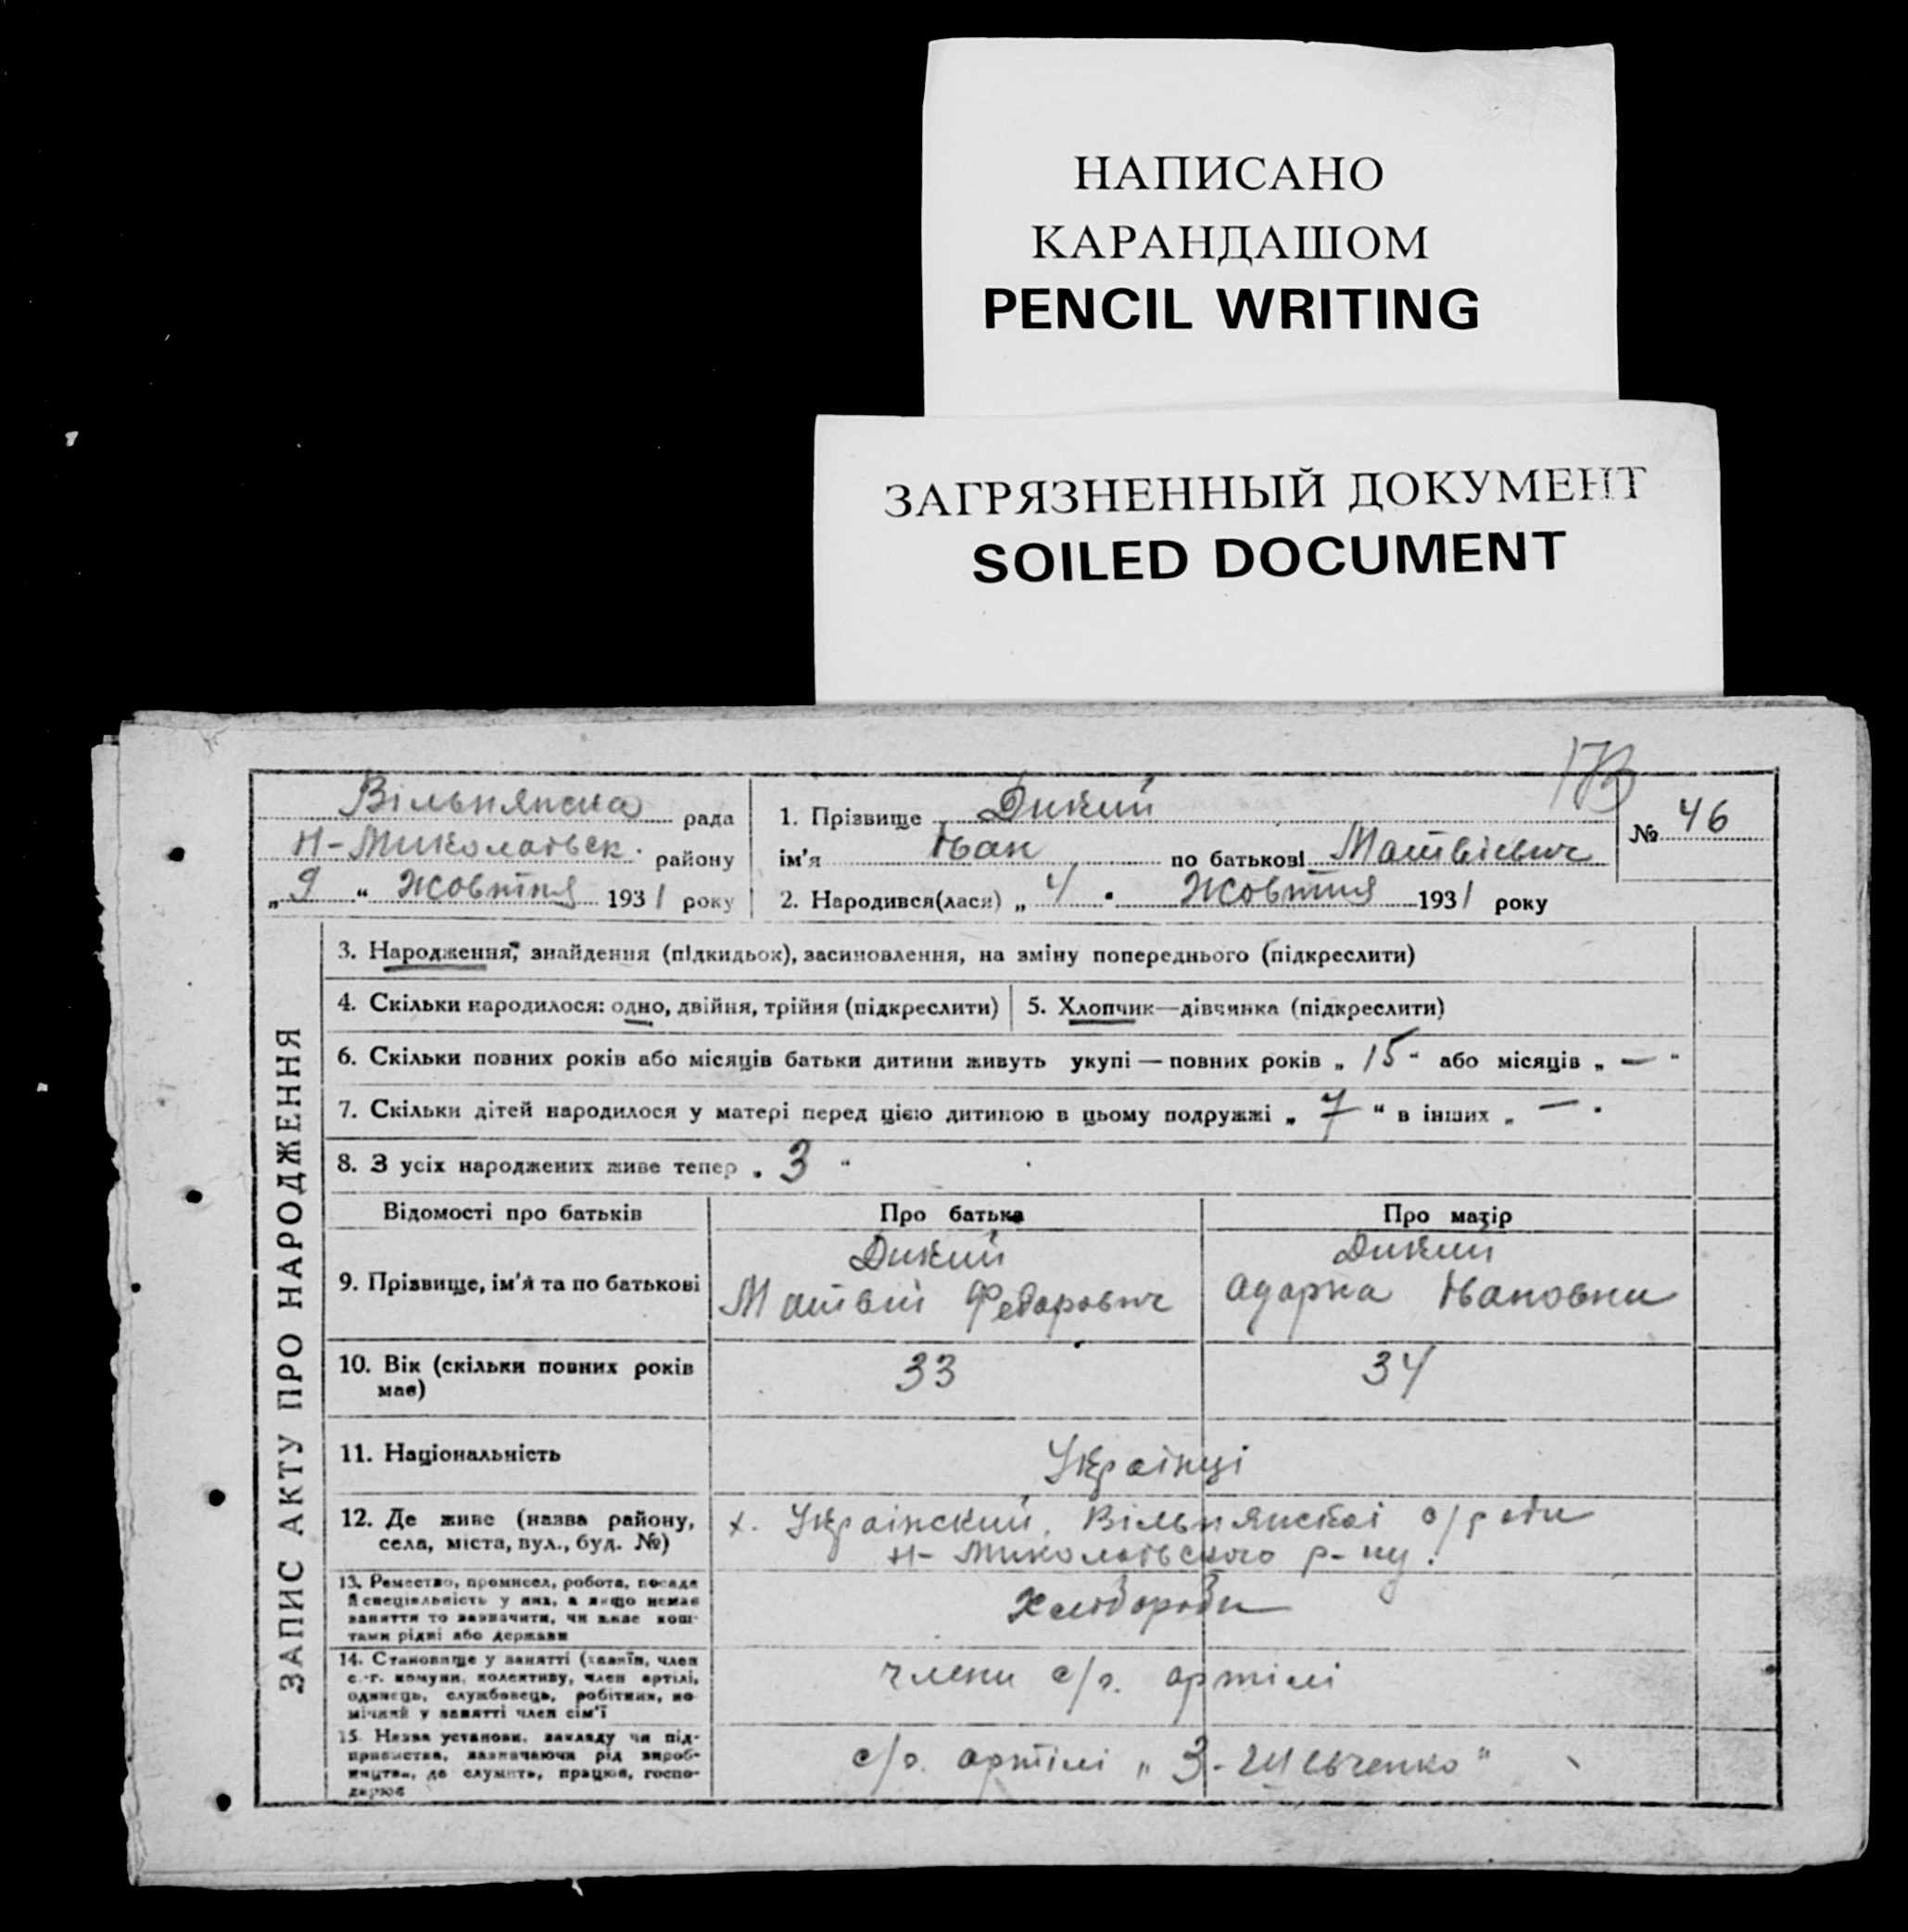 НАПИСАНО
КАРАНДАШОМ
PENCIL WRITING
ЗАГРЯЗНЕННЫЙ ДОКУМЕНТ
SOILED DOCUMENT
Вільнянска рада
Н-Миколаівск. району
„ 9 “ Жовтня 1931 року
1. Прізвище Дикий
ім'я Іван по батькові Матвієвич
№ 46
2. Народився(лася) „ 4 " Жовтня 1931 року
ЗАПИС АКТУ ПРО НАРОДЖЕННЯ
3. Народження, знайдення (підкидьок), засиновлення, на зміну попереднього (підкреслити)
4. Скільки народилося: одно, двійня, трійня (підкреслити) 5. Хлопчик—дівчинка (підкреслити)
6. Скільки повних років або місяців батьки дитини живуть укупі — повних років „ 15 “ або місяців „ — “
7. Скільки дітей народилося у матері перед цією дитиною в цьому подружжі „ 7 “ в інших „ — “
8. З усіх народжених живе тепер „ 3 “
Відомості про батьків Про батька Про матір
9. Прізвище, ім'я та по батькові
Дикий
Матвій Федорович
Дикий
Одарка Івановни
10. Вік (скільки повних років має)
33
34
11. Національність
Українці
12. Де живе (назва району,
села, міста, вул., буд. №)
х. Украінский, Вільнянскоі с/ради
Н- Миколаівского р-ну.
13. Ремество, промисел, робота, посада
й спеціяльність у них, а якщо немає
заняття то зазначити, чи живе кош-
тами рідні або держави
Хлібороби
14. Становище у занятті (хазяїн, член
с.-г. комуни, колективу, член артілі,
одинець, службовець, робітник, по
мічний у занятті член сім'ї
члени с/г. артілі
15. Назва установи, закладу чи під-
приємства, зазначаючи рід вироб-
ництва, де служить, працює, госпо-
дарює
с/г. артілі „